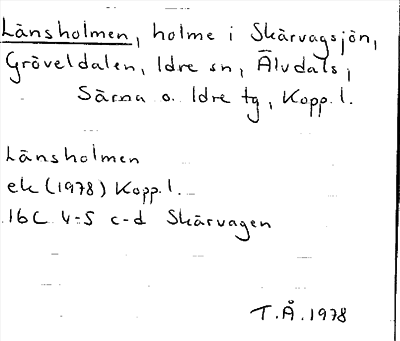 Länsholmen, holme i Skärvagsjön,
Gröveldalen, Idre sn, Älvdals,
Särna o. Idre tg, Kopp. l.
Länsholmen
ek (1978) Kopp. l.
16C 4-5 c-d Skärvagen
T.Å. 1978